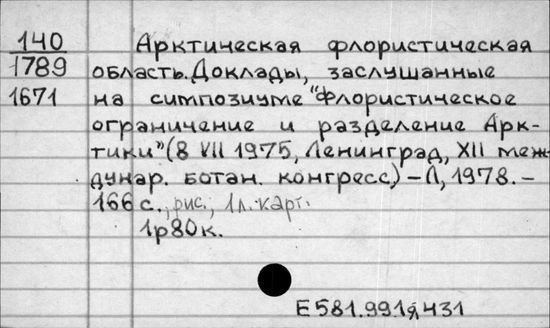 140 Арктическая флористическая
1789 область. Доклады, заслушанные
1671 на симпозиуме "Флористическое
ограничение и разделение Арк-
тики" (8 VII 1975, Ленинград, XII меж-
дунар. ботан. конгресс) - Л, 1978. -
166 с., рис., 1 л. карт.
1р80к.
Е581.991я431